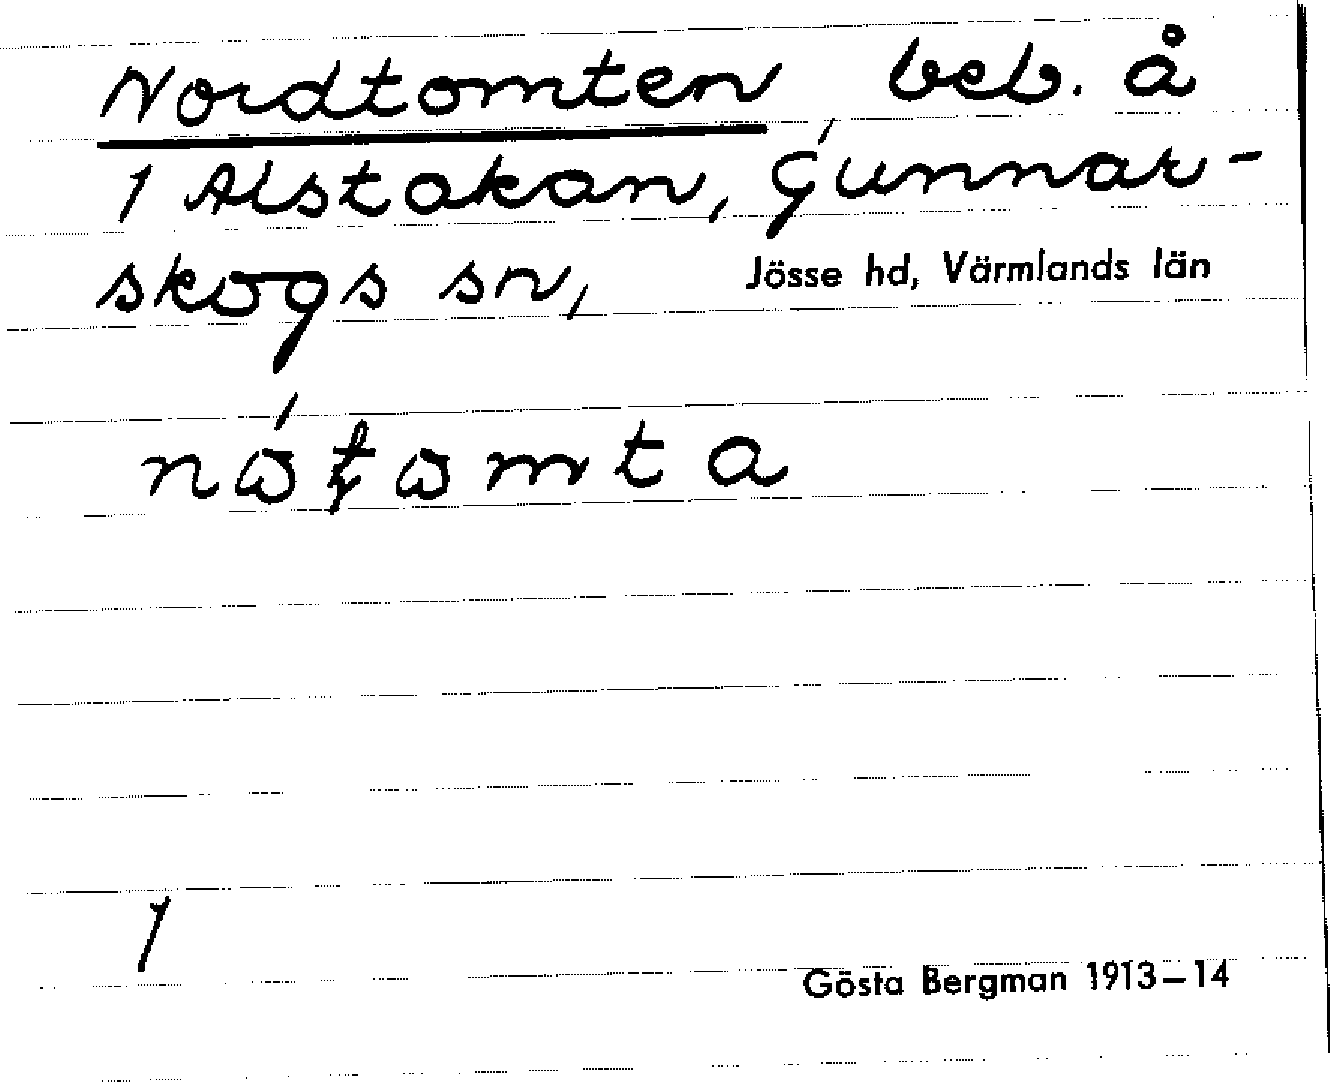 Nordtomten beb. å
1 Alstakan, Gunnar-
skogs sn, Jösse hd, Värmlands län
1
Gösta Bergman 1913–14